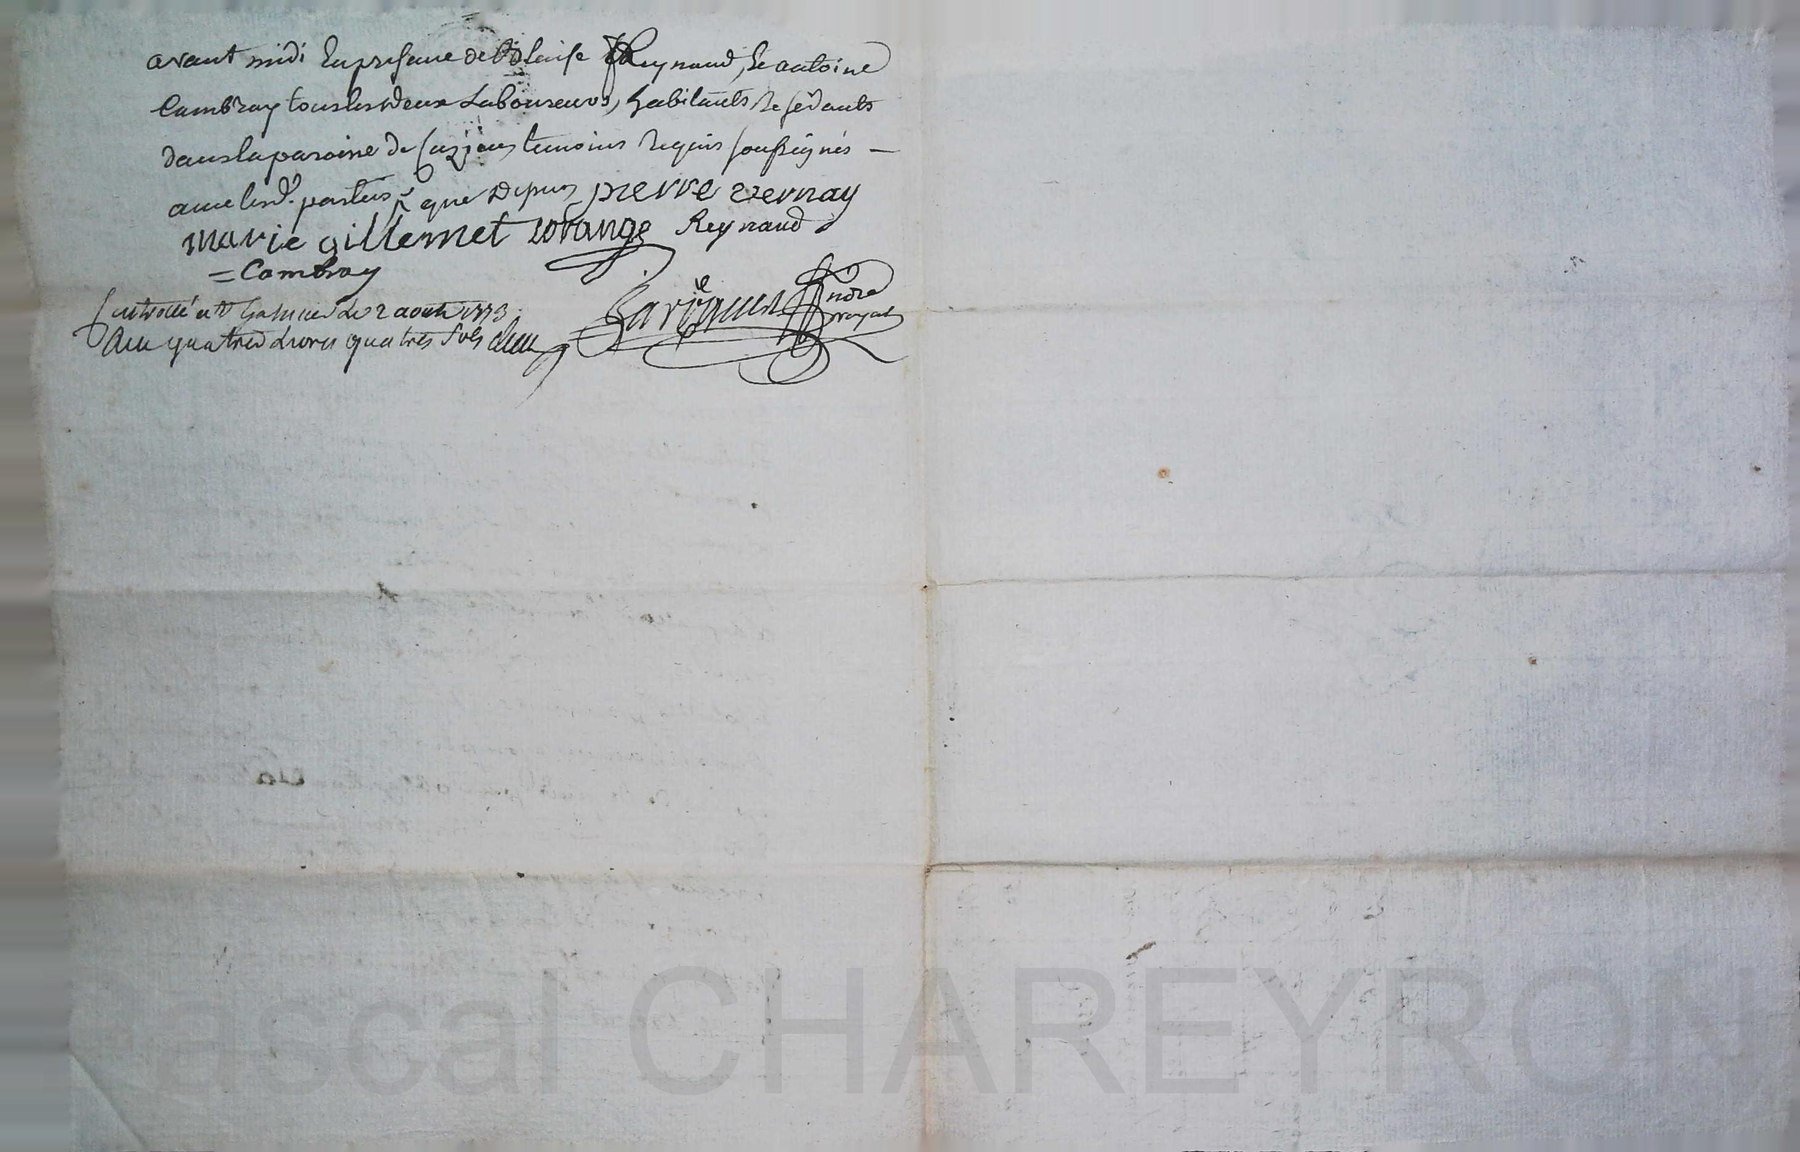 avant midi En presence de Blaise Reynaud, & antoine
Cambray tous les deux Laboureurs, habitants & residants
dans la paroisse de temoins Requis soussignés —
avec les d. parties que Depuis pierre vernay
marie gillemet lofange Reynaud
= Cambray
Controllé a Le 2 aoust 1773
quatres Livres quatres sols
ndre
royal
Pascal CHAREYRON